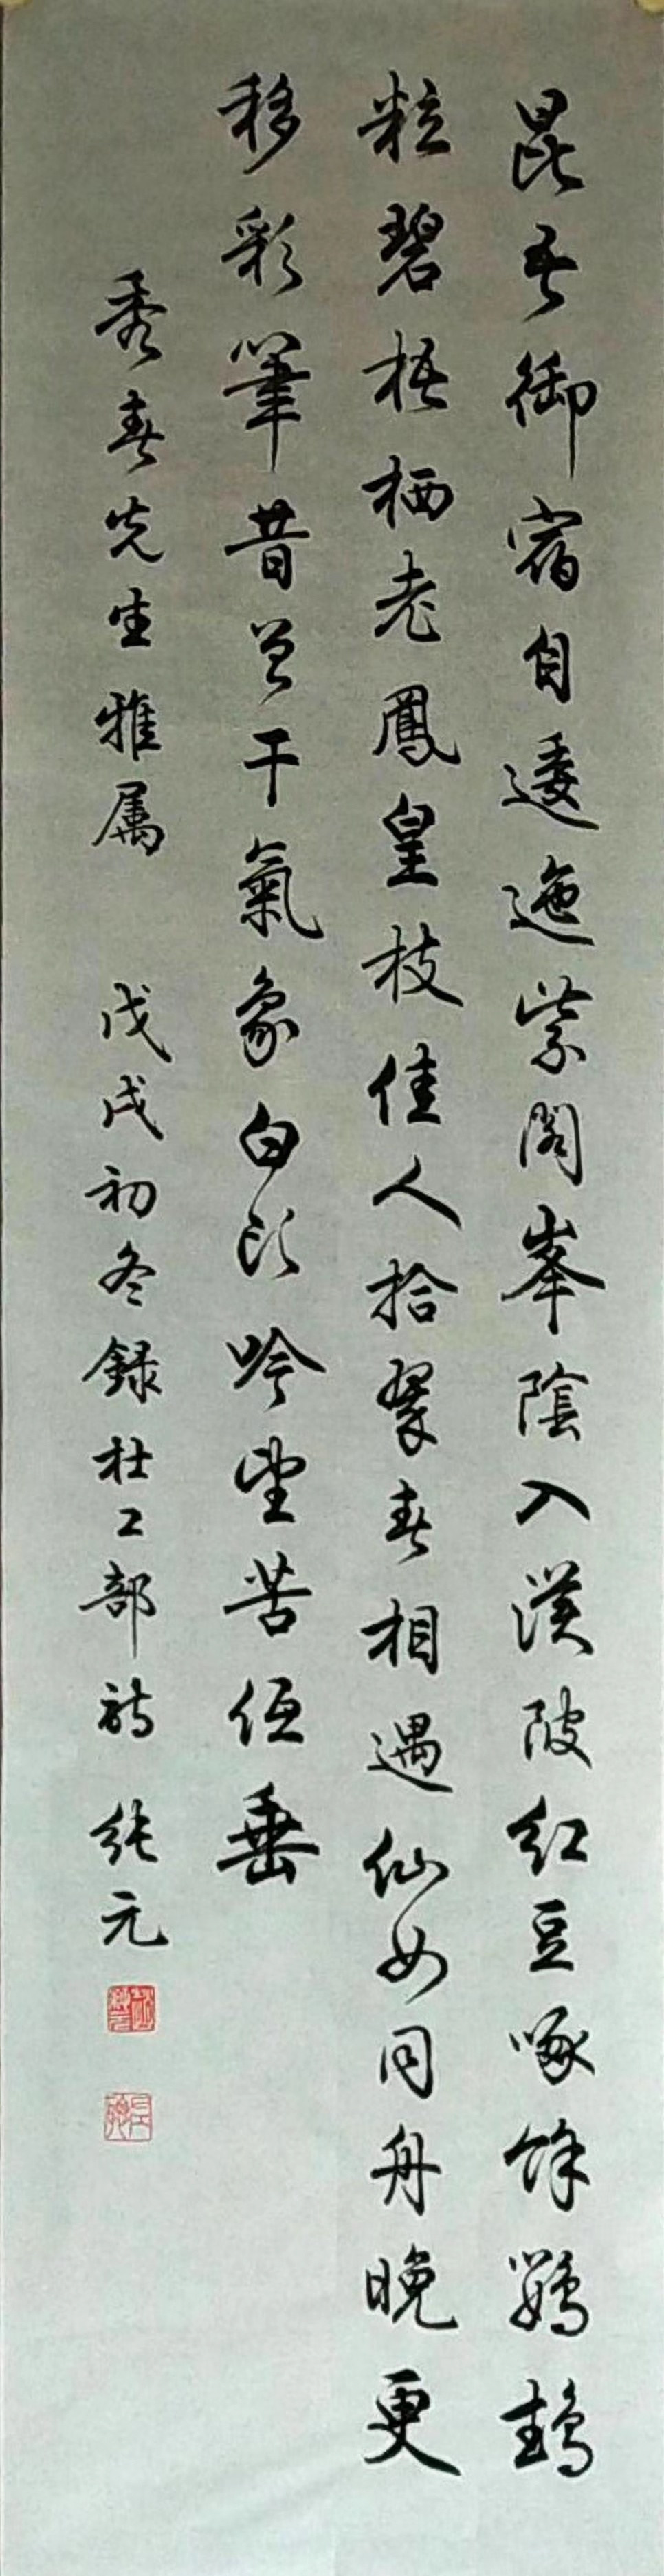 昆吾御宿自逶迤紫閣峯陰入渼陂紅豆啄餘鸚鵡
粒碧梧栖老鳳皇枝佳人拾翠春相遇仙女同舟晚更
移彩筆昔曾干氣象白頭吟望苦低垂
秀春先生雅属 戊戌初冬録杜工部詩 純元